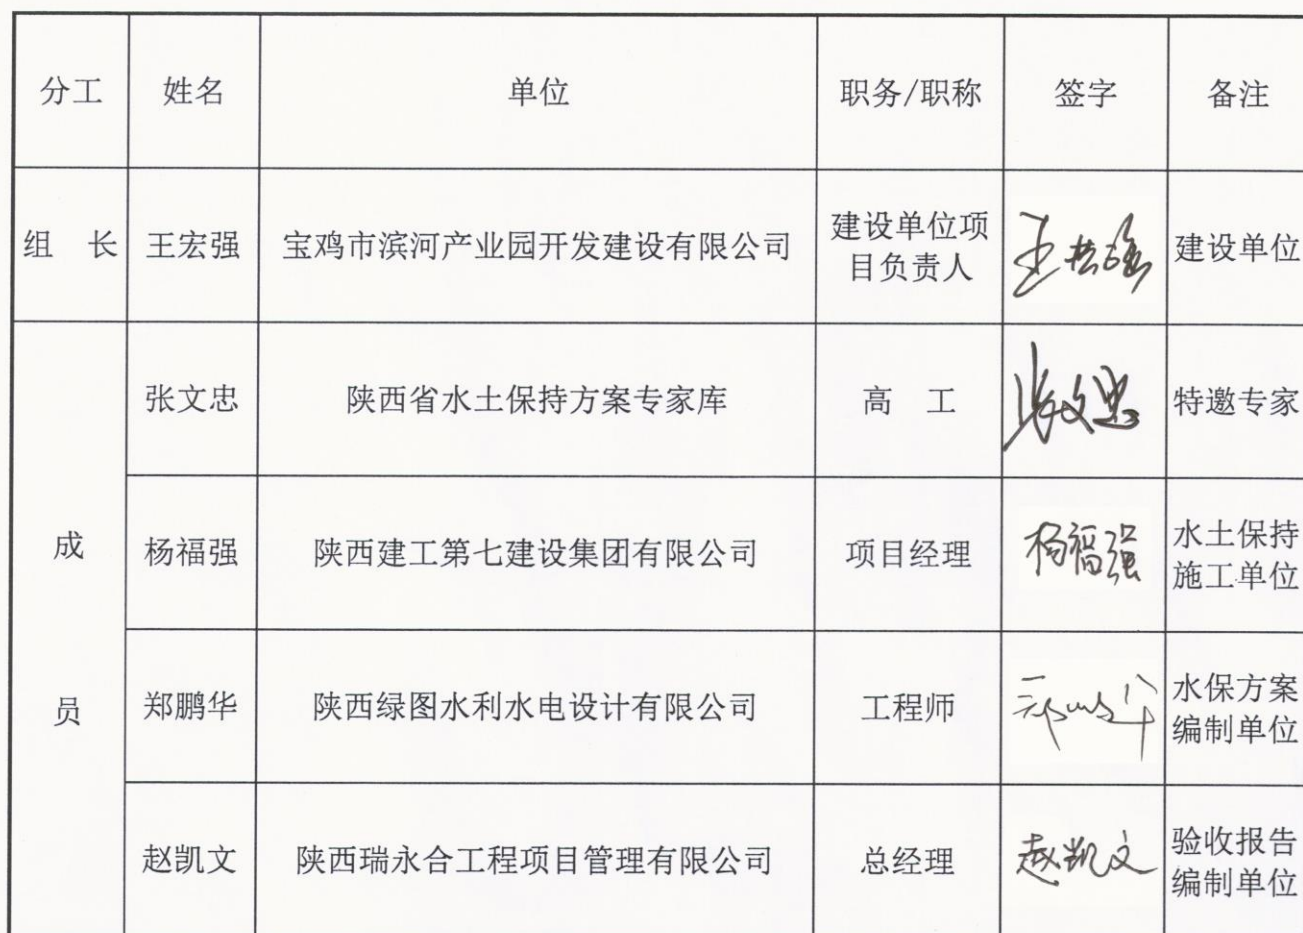 分工 姓名 单位 职务/职称 签字 备注
组 长 王宏强 宝鸡市滨河产业园开发建设有限公司 建设单位项 王宏强 建设单位
目负责人
成
员
张文忠 陕西省水土保持方案专家库 高 工 张文忠 特邀专家
杨福强 陕西建工第七建设集团有限公司 项目经理 杨福强 水土保持
施工单位
郑鹏华 陕西绿图水利水电设计有限公司 工程师 郑鹏华 水保方案
编制单位
赵凯文 陕西瑞永合工程项目管理有限公司 总经理 赵凯文 验收报告
编制单位